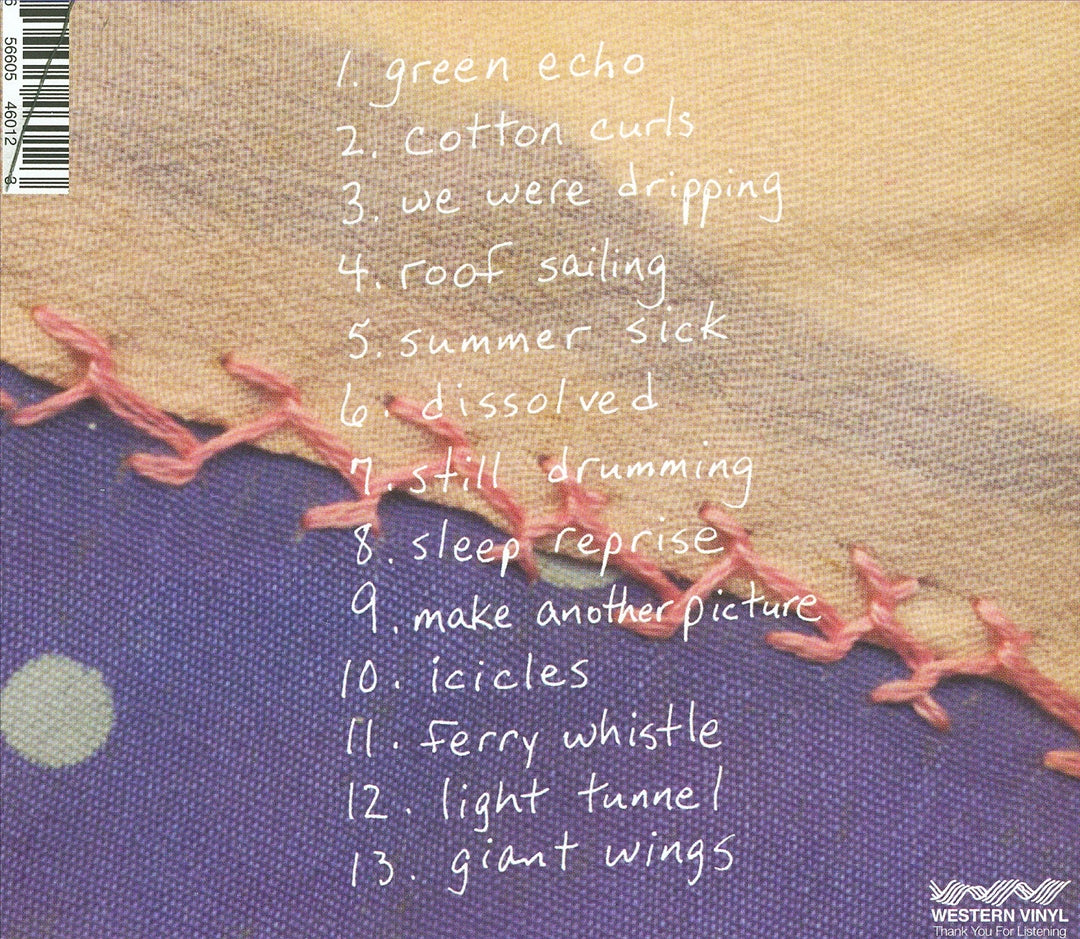 6 56605 46012 3
1. green echo
2. cotton curls
3. we were dripping
4. roof sailing
5. summer sick
6. dissolved
7. still drumming
8. sleep reprise
9. make another picture
10. icicles
11. ferry whistle
12. light tunnel
13. giant wings
WESTERN VINYL
Thank You For Listening